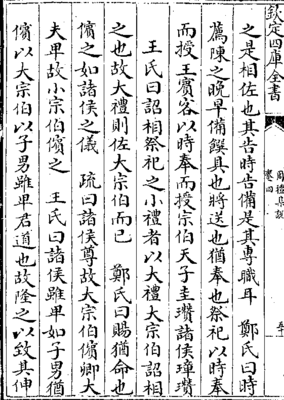 欽定四庫全書
周禮集說
卷四
之是相佐也其告時告備是其專職耳　鄭氏曰時
薦陳之晚早備饌具也將送也猶奉也祭祀以時奉
而授王賓客以時奉而授宗伯天子圭瓚諸侯璋瓚
王氏曰詔相祭祀之小禮者以大禮大宗伯詔相
之也故大禮則佐大宗伯而已　鄭氏曰賜猶命也
儐之如諸侯之儀　疏曰諸侯尊故大宗伯儐卿大
夫卑故小宗伯儐之　王氏曰諸侯雖卑如子男猶
儐以大宗伯以子男雖卑君道也故隆之以致其伸